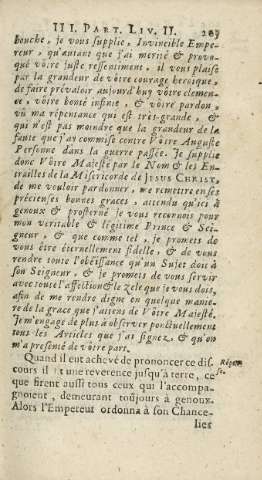 III. PART. LIV. II. 287
bouche, je vous supplie, Invincible Empe-
reur, qu'autant que j'ai merité & provo-
qué vôtre juste ressentiment, il vous plaise
par la grandeur de vôtre courage heroique,
de faire prévaloir aujourd'huy vôtre clemen-
ce, vôtre bonté infinie, & vôtre pardon,
vû ma repentance qui est très-grande, &
qui n'est pas moindre que la grandeur de la
faute que j'ay commise contre Vôtre Auguste
Personne dans la guerre passée. Je supplie
donc Vôtre Majesté par le Nom & les En-
trailles de la Misericorde de JESUS CHRIST,
de me vouloir pardonner, me remettre en ses
précieuses bonnes graces, attendu qu'ici à
genoux & prosterné je vous reconnois pour
mon veritable & légitime Prince & Sei-
gneur, & que comme tel, je promets de
vous être éternellement fidelle, & de vous
rendre toute l'obéissance qu'un Sujet doit à
son Seigneur, & je promets de vous servir
avec toute l'affection & le zele que je vous dois,
afin de me rendre digne en quelque manie-
re de la grace que j'attens de Vôtre Majesté.
Je m'engage de plus à observer ponctuellement
tous les Articles que j'ai signez, & qu'on
m'a presenté de vôtre part.
Quand il eut achevé de prononcer ce dis-
cours il fit une reverence jusqu'à terre, ce
que firent aussi tous ceux qui l'accompa-
gnoient, demeurant toûjours à genoux.
Alors l'Empereur ordonna à son Chance-
lier